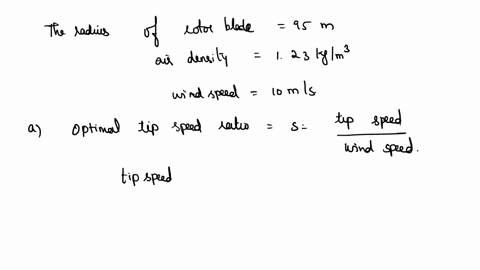 The radius of rotor blade = 95 m
air density = 1.23 kg/m³
wind speed = 10 m/s
a) Optimal tip speed ratio = s = tip speed / wind speed.
tip speed